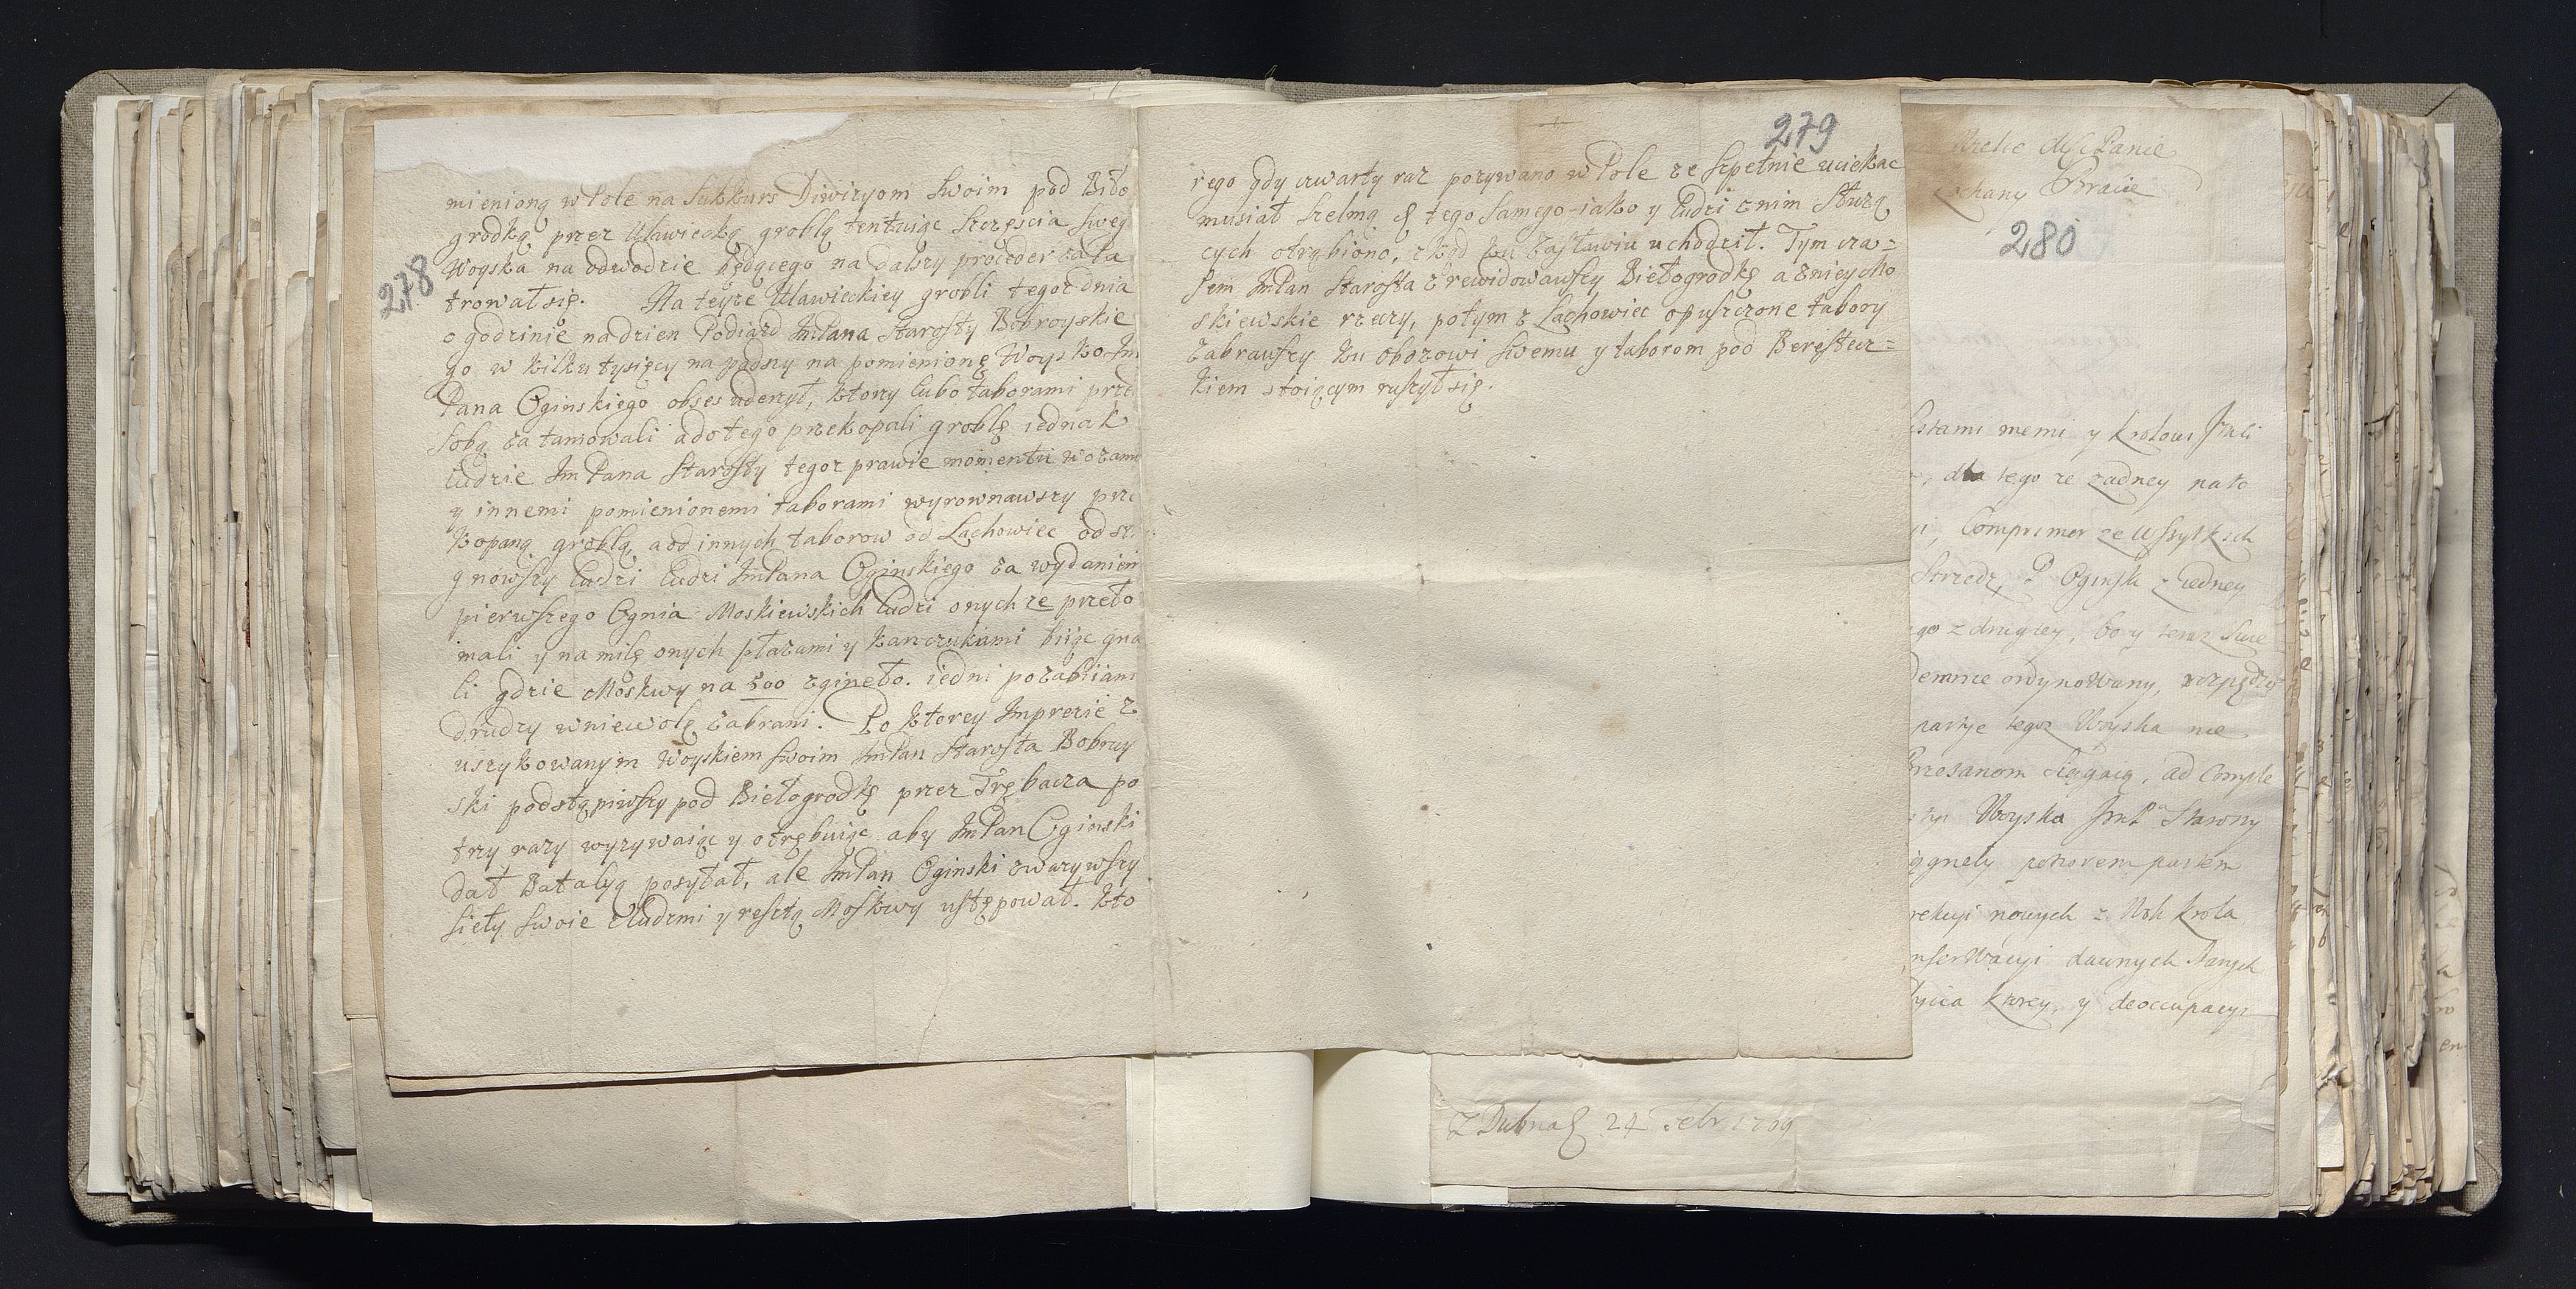 278
mienioną w Pole na Sukkurs Diwizyom Swoim pod Biło
grodką przez Uławiecką groblą tentuiąc Szczęścia Sweg
Woyska na odwodzie będącego na dalszy proceder zata
trował się. Na teyże Uławieckiey grobli tegoż dnia
o godzinie nadzien Podiazd ImPana Starosty Bobroyskie
go w kilku tysięcy napadszy na pomienionę Woysko Im
Pana Oginskiego obses uderzył, ktory lubo taborami prze
sobą zatamowali a do tego przekopali groblę iednak
ludzie ImPana Starosty tegoż prawie momentu wozami
y innemi pomienionemi taborami wyrownawszy prze
kopaną groblą, a od innych taborow od Lachowiec odst
gnowszy ludzi ludzi ImPana Oginskiego za wydaniem
pierwszego Ognia Moskiewskich ludzi onychże przeło
mali y na milę onych płazami y kanczukami biiąc gna
li gdzie Moskwy na 500 zgineło. iedni pozabiiani
drudzy w niewolę zabrani. Po ktorey Imprezie z
uszykowanym Woyskiem Swoim ImPan Starosta Bobruy
ski podstąpiwszy pod Biełogrodkę przez Trębacza po
trzy razy wyzywaiąc y otrębuiąc aby ImPan Oginski
dał Batalyą posyłał, ale ImPan Oginski zwazywszy
siely Swoie z ludzmi y resztą Moskwy ustępował. kto
279
rego gdy czwarty raz pozywano w Pole ze Szpetnie uciekac
musiał Szelmą & tego Samego iako y ludzi znim Służą
cych otrąbiono, zkąd ku Zasławiu uchodził. Tym cza=
sem ImPan Starosta zrewidowawszy Biełogrodkę a zniey Mo
skiewskie rzeczy, potym z Lachowiec opuszczone tabory
zabrawszy ku obozowi Swemu y taborom pod Beręstecz=
kiem stoiącym ruszył się.
Panie
kochany Bracie
280
listami memi y krolowi Jmści
dla tego ze zadney na to
Comprimor ze Wszytkich
P Oginsk z iedney
go z drugiey, bo y teraz
demnie ordynowany,
partye tegoz Woyska nie
ad Comple
Woyska JmP Starosty
nowych z Woli krola
dawnych
y deoccupacyi
Z Dubna & 24 Febr 1709